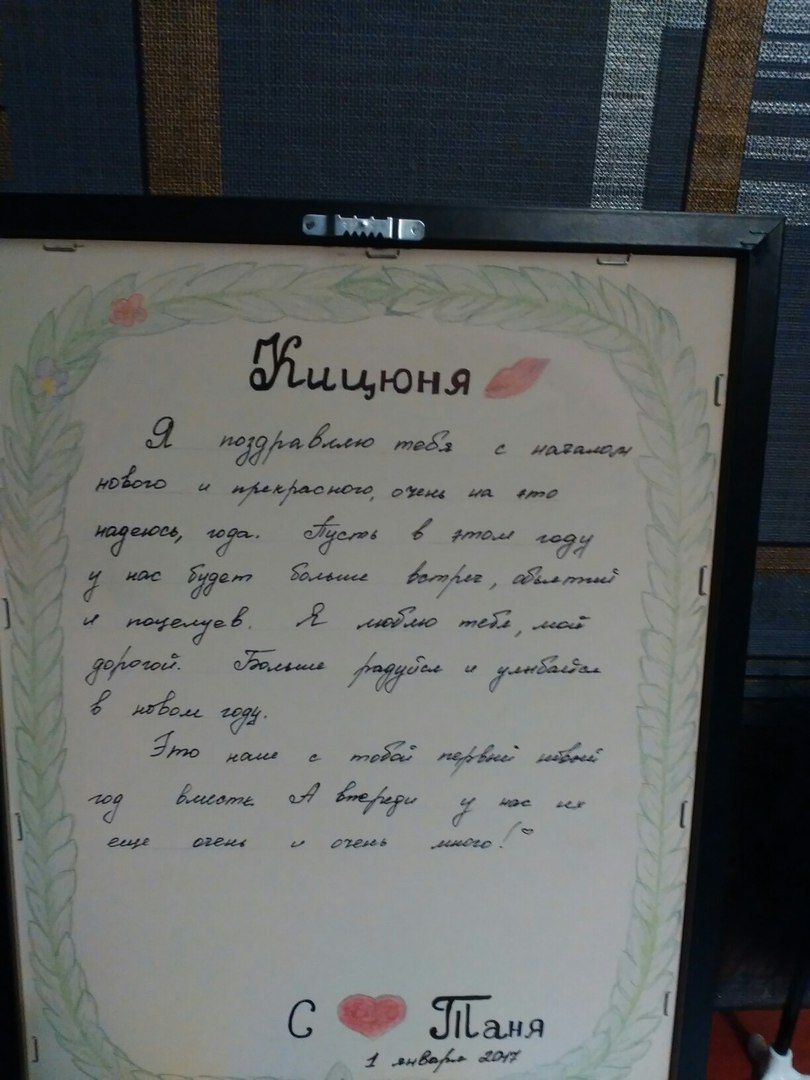 Кицюня
Я поздравляю тебя с началом
нового и прекрасного, очень на это
надеюсь, года. Пусть в этом году
у нас будет больше встреч, объятий
и поцелуев. Я люблю тебя, мой
дорогой. Больше радуйся и улыбайся
в новом году.
Это наш с тобой первый новый
год вместе. А впереди у нас их
еще очень и очень много!
С Таня
1 января 2017